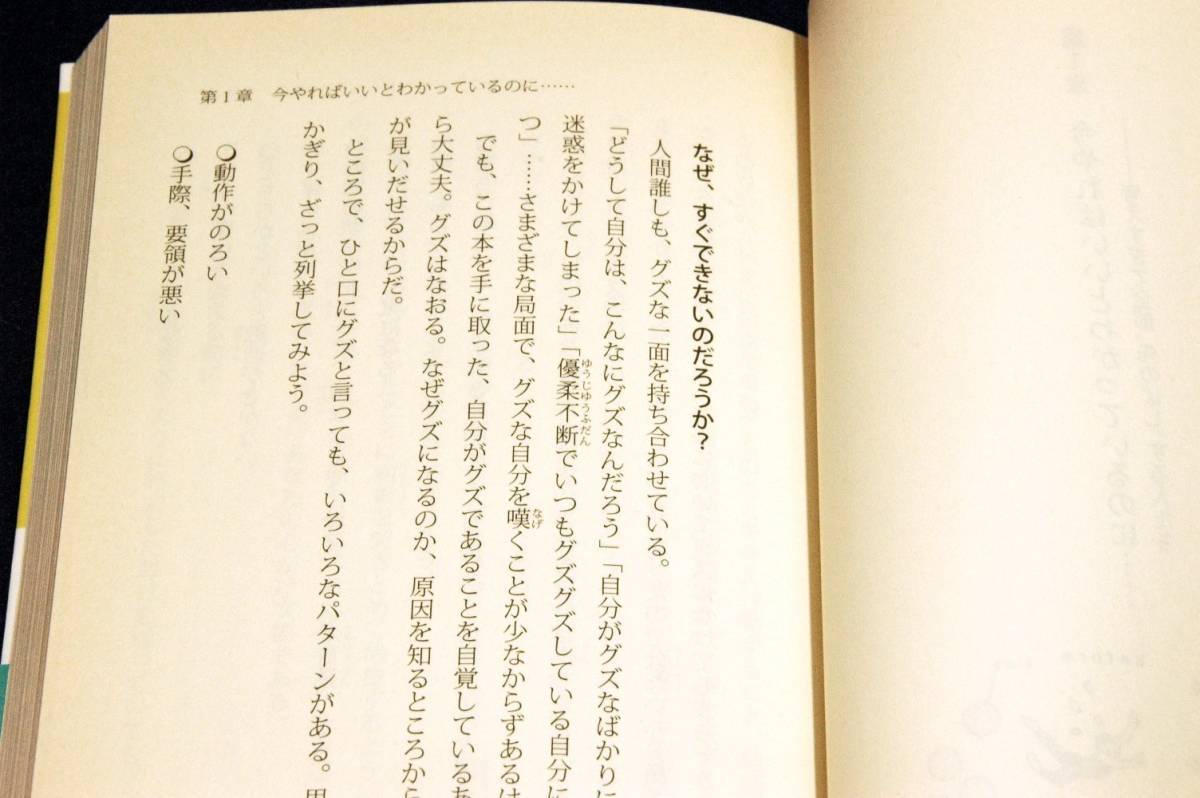 第1章 今やればいいとわかっているのに……
なぜ、すぐできないのだろうか？
人間誰しも、グズな一面を持ち合わせている。
「どうして自分は、こんなにグズなんだろう」「自分がグズなばかりに
迷惑をかけてしまった」「優柔不断でいつもグズグズしている自分に
つ」……さまざまな局面で、グズな自分を嘆くことが少なからずあるは
でも、この本を手に取った、自分がグズであることを自覚しているあ
ら大丈夫。グズはなおる。なぜグズになるのか、原因を知るところから
が見いだせるからだ。
ところで、ひと口にグズと言っても、いろいろなパターンがある。思
かぎり、ざっと列挙してみよう。
○動作がのろい
○手際、要領が悪い